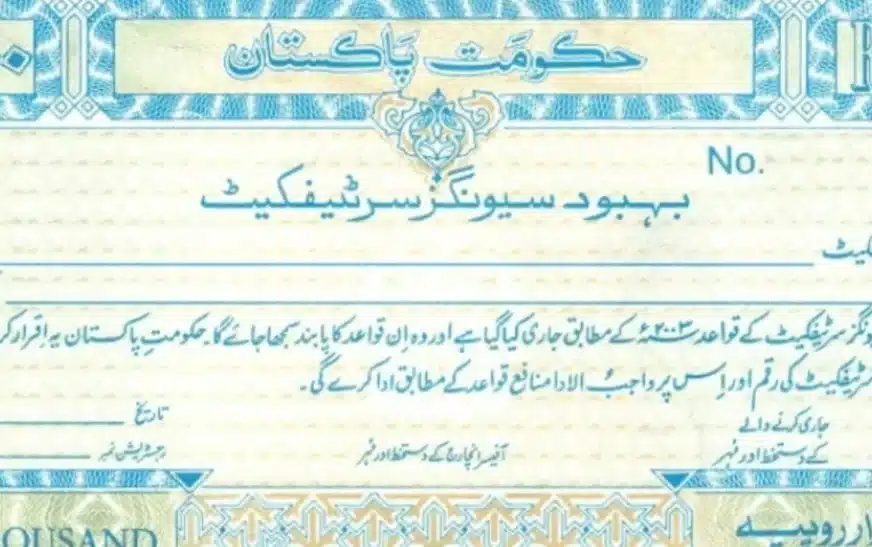 حکومت پاکستان
No.
بہبود سیونگز سرٹیفکیٹ
ونگز سرٹیفکیٹ کے قواعد ۲۰۰۳ء کے مطابق جاری کیا گیا ہے اور وہ ان قواعد کا پابند سمجھا جائے گا۔ حکومتِ پاکستان یہ اقرار کر
سرٹیفکیٹ کی رقم اور اِس پر واجبُ الادا منافع قواعد کے مطابق ادا کرے گی۔
جاری کرنے والے تاریخ
کے دستخط اور مہر آفیسر انچارج کے دستخط اور مہر رجسٹریشن نمبر
OUSAND ار روپیہ